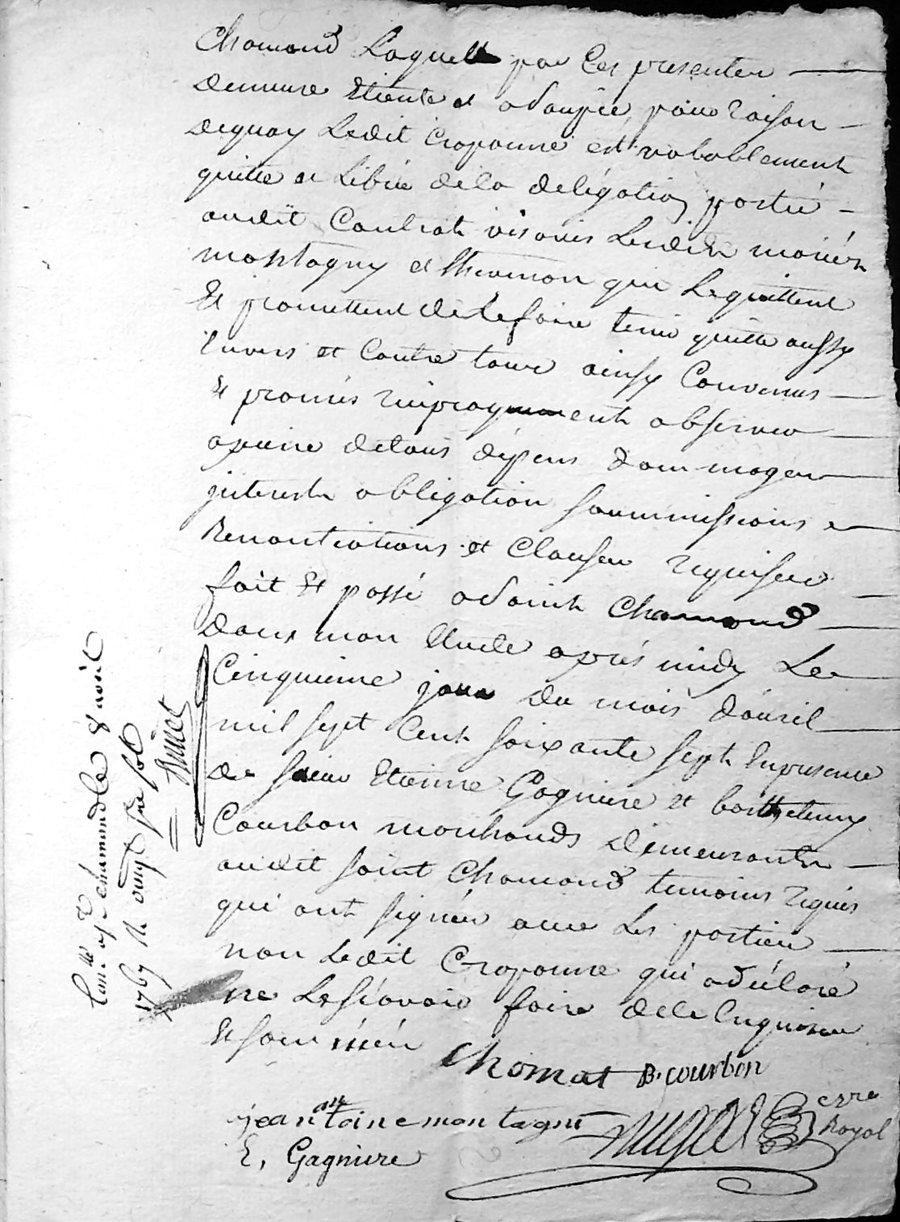 Chamond Laquelle par Ces presentes
demeure Eteinte et assoupie, pour raison
dequoy Ledit Croponne est valablement
quitte et Libéré dela delégation portée
audit Contrat visavis Lesdits mariés
montagny et thiomon qui Le quittent
Et promettent de Le faire tenir quitte aussy
Envers et Contre tous ainsy Convenus
Et promis reciproquement observer
apeine detous dépens dommages
jnterests obligation soummissions
Renontiations et Clauses requises
fait Et passé a Saint Chamond
dans mon Etude aprés midy Le
Cinquieme jour du mois d'avril
mil sept Cent soixante sept En presence
de sieur Etienne Gagniere et barthelemy
Courbon marchands demeurants
audit saint Chamond temoins requis
qui ont signés avec Les parties
non Ledit Croponne qui a déclaré
ne Le sçavoir faire de ce Enquis
Et sommé
Chomat B. courbon
jean antoine montagni
E, Gagniere
nre
Royal
Con.lle a St chamond le 8 avril
1767 R vingt six sols